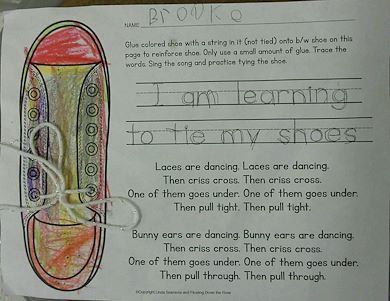 NAME Bronko
Glue colored shoe with a string in it (not tied) onto b/w shoe on this
page to reinforce shoe. Only use a small amount of glue. Trace the
words. Sing the song and practice tying the shoe.
I am learning
to tie my shoes
Laces are dancing. Laces are dancing.
Then criss cross. Then criss cross.
One of them goes under. One of them goes under.
Then pull tight. Then pull tight.
Bunny ears are dancing. Bunny ears are dancing.
Then criss cross. Then criss cross.
One of them goes under. One of them goes under.
Then pull through. Then pull through.